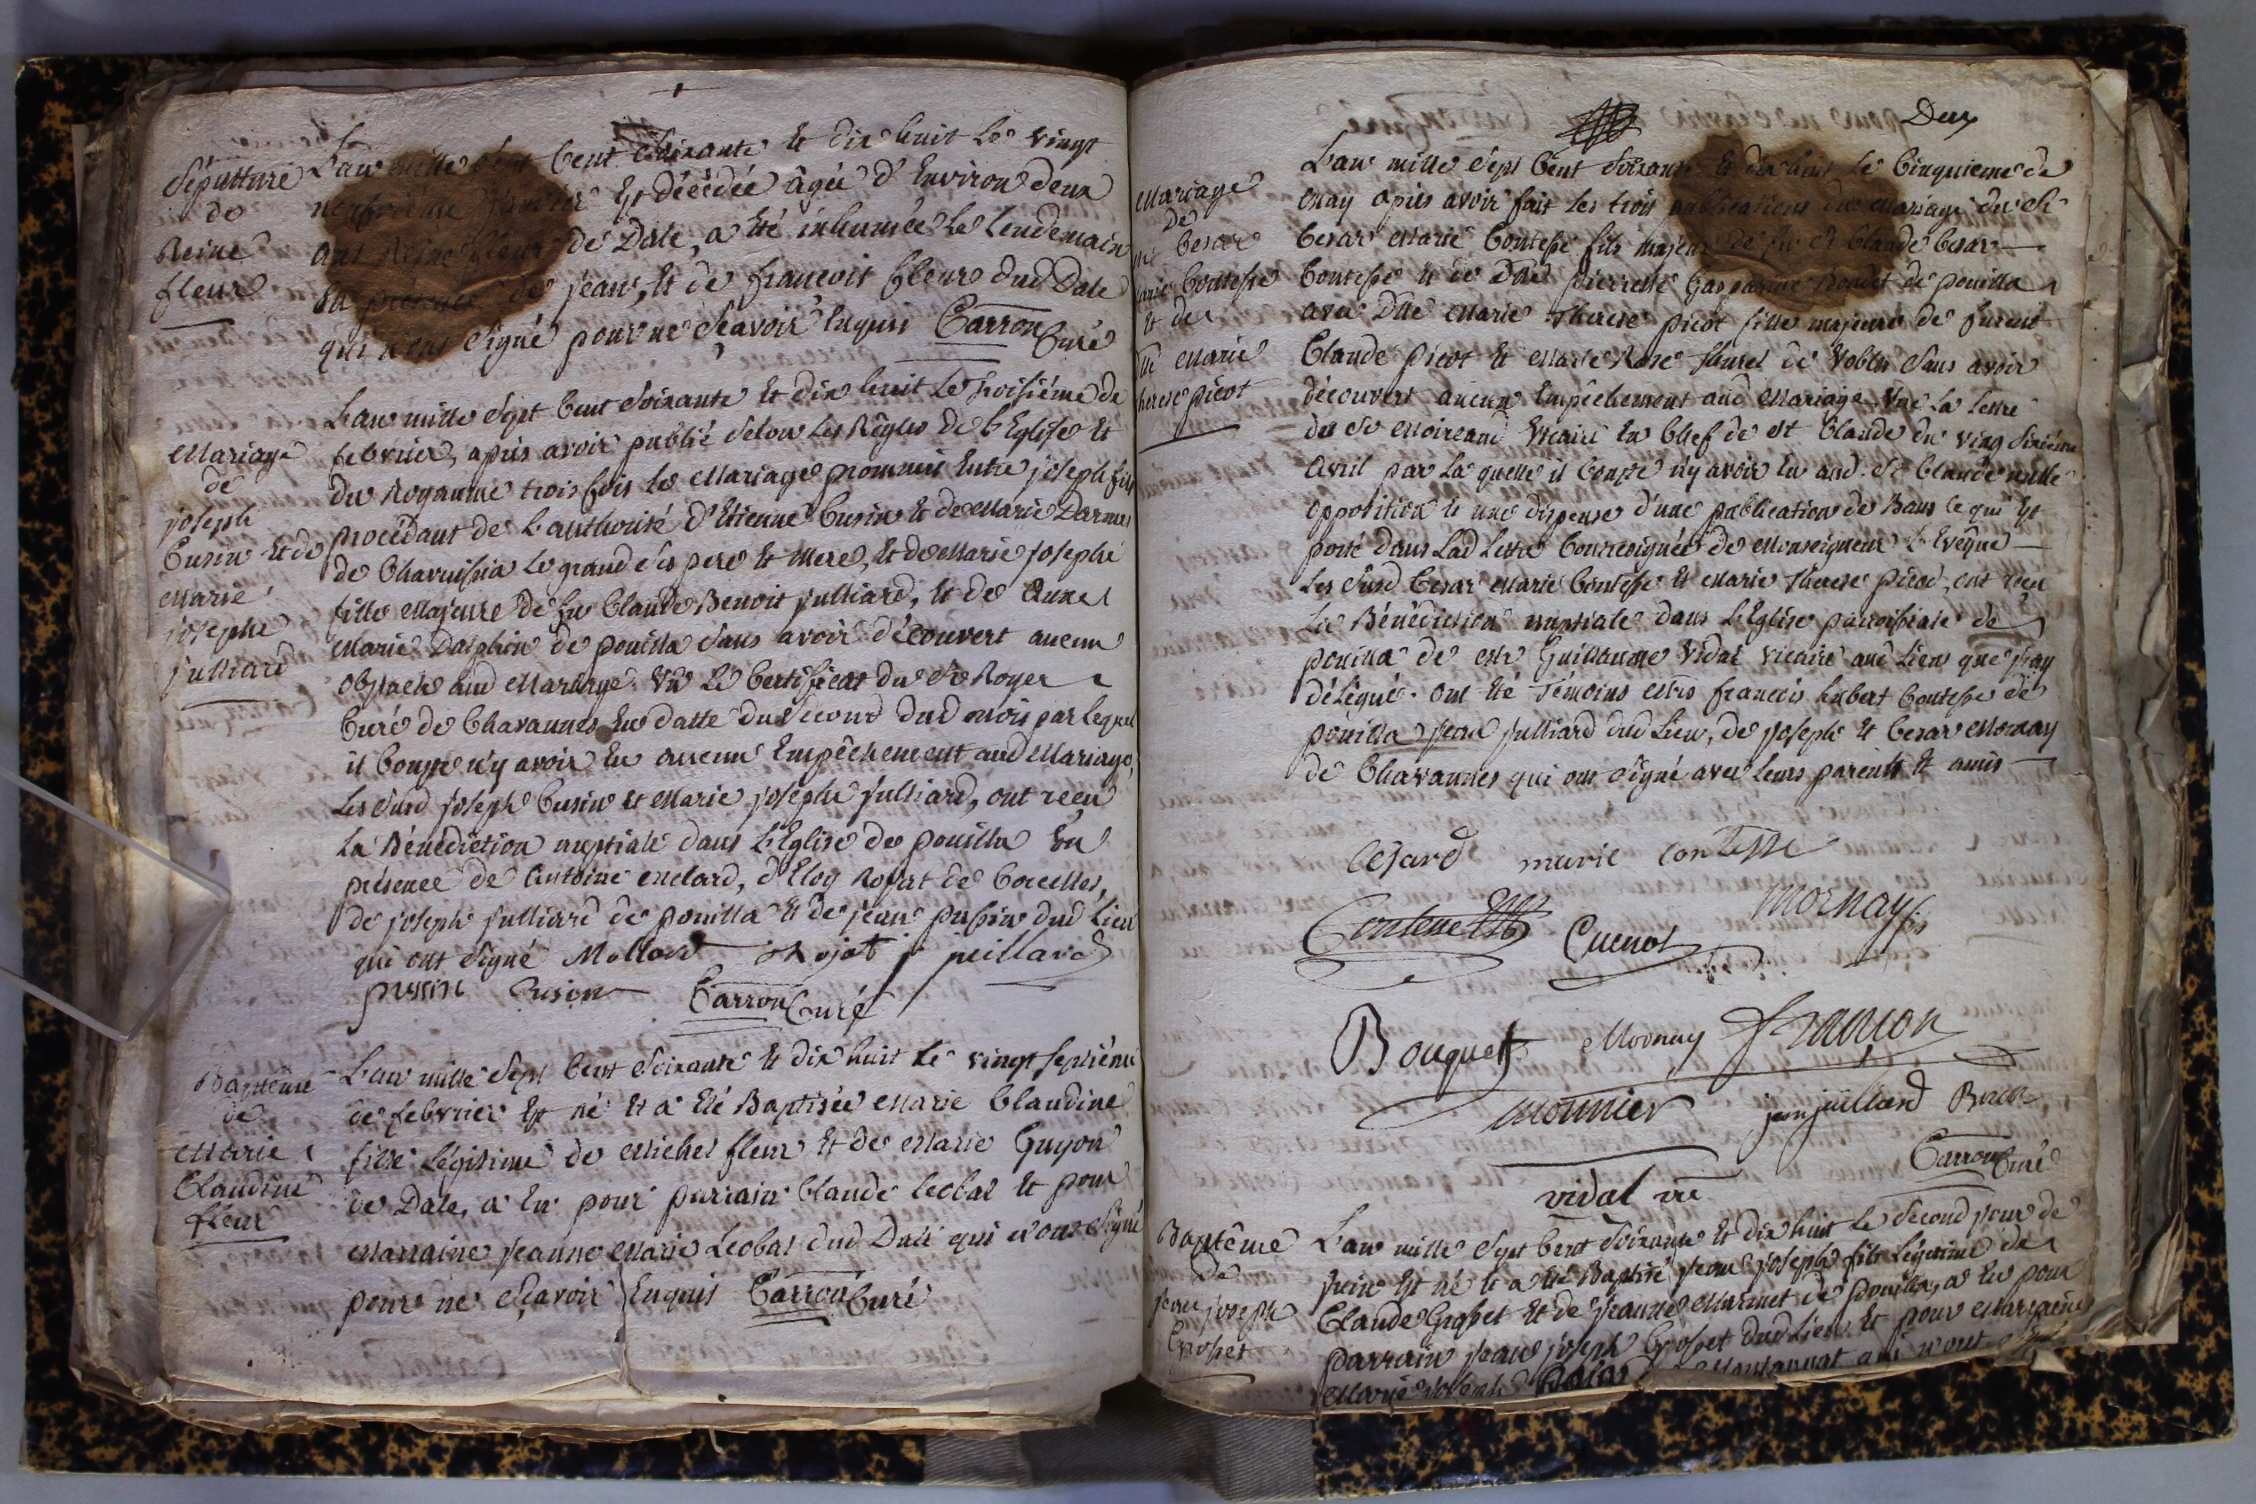 Sépulture
de
Reine
fleur
L'an mille sept cent soixante et dix huit le vingt
est décédée âgée d'environ deux
ans Reine fleur de Dale, a été inhumée le lendemain
en présence de jean, et de francoit fleur dud Dale
qui n'ont signé pour ne sçavoir Enquis Carron Curé
Mariage
de
joseph
Cusin et de
Marie
josephe
julliard
L'an mille sept Cent soixante et dix huit le troisiéme de
febvrier, après avoir publié selon les Régles de l'Eglise et
du Royaume trois fois le Mariage promis Entre joseph fils
procédant de L'authorité d'Etienne Cusin et de Marie Darmes
de le grand ses pere et mere, et de Marie josephe
fille Majeure de feu Claude Benoit julliard, et de Anne
Marie Dalphin de pouilla sans avoir découvert aucun
obstacle aud Mariage. Vû le Certificat du Sr Royer
Curé de Chavannes en datte du second dud mois par lequel
il Conste n'y avoir eu aucun Empêchement aud Mariage,
Les susd joseph Cusin et Marie josephe julliard, ont reçu
La Bénédiction nuptiale dans l'Eglise de pouilla En
présence de Antoine molard, d'Eloy Rojat de Corcelles,
de joseph julliard de pouilla et de jean pussin dud Lieu
qui ont signé Mollard Rojat j juillard
pussin Cusin Carron Curé
Baptême
de
Marie
Claudine
fleur
L'an mille Sept Cent soixante et dix huit le vingt septiéme
de febvrier Est né et a été Baptisée Marie Claudine
fille Légitime de Michel fleur et de Marie Guyon
de Dale, a Eu pour parrain Claude Leobal et pour
Marraine jeanne Marie Léobal dud Dale qui n'ont signé
pour ne sçavoir Enquis Carron Curé
Deux
Mariage
de
Cesar
Marie Contesse
et de
Dlle Marie
therese picot
L'an mille sept Cent soixante et dix huit le Cinquieme de
May après avoir fait les trois publications du Mariage du Sr
Cesar Marie Contesse fils Majeur de feu Sr Claude Cesar
Contesse et de Dlle pierrette Gasparine de pouilla
avec Dlle Marie Therese picot fille majeure de furent
Claude picot et Marie Rose de Vobles sans avoir
découvert aucun Empêchement aud Mariage. Vue La Lettre
du Sr Vicaire En Chef de St Claude du ving sixiéme
Avril par La quelle il Conste n'y avoir Eu aud. St Claude nulle
opposition et une dispense d'une publication de Bans ce qui Est
porté dans Lad Lettre Contresignée de Monseigneur L'Evêque
Les susd Cesar Marie Contesse et Marie Therese picot, ont reçu
La Bénédiction nuptiale dans L'Eglise paroissiale de
pouilla de Mr Guillaume Vidal vicaire aud Lieu que j'ay
délégué. ont été Témoins Mrs francois hubert Contesse de
pouilla jean julliard dud Lieu, de joseph et Cesar Mornay
de Chavannes qui ont signé avec leurs parents et amis
Cesard marie contesse
Contesse Cuenot Mornay fils
Bouquet Mornay
Mounier jean juilliard
Carron Curé
vidal vic
Baptême
de
jean joseph
L'an mille sept Cent soixante et dix huit le second jour de
juin Est né et a été Baptisé jean joseph fils Légitime de
Claude et de jeanne de pouilla, a Eu pour
parrain jean joseph dud Lieu et pour Marraine
Marie joseph qui n'ont